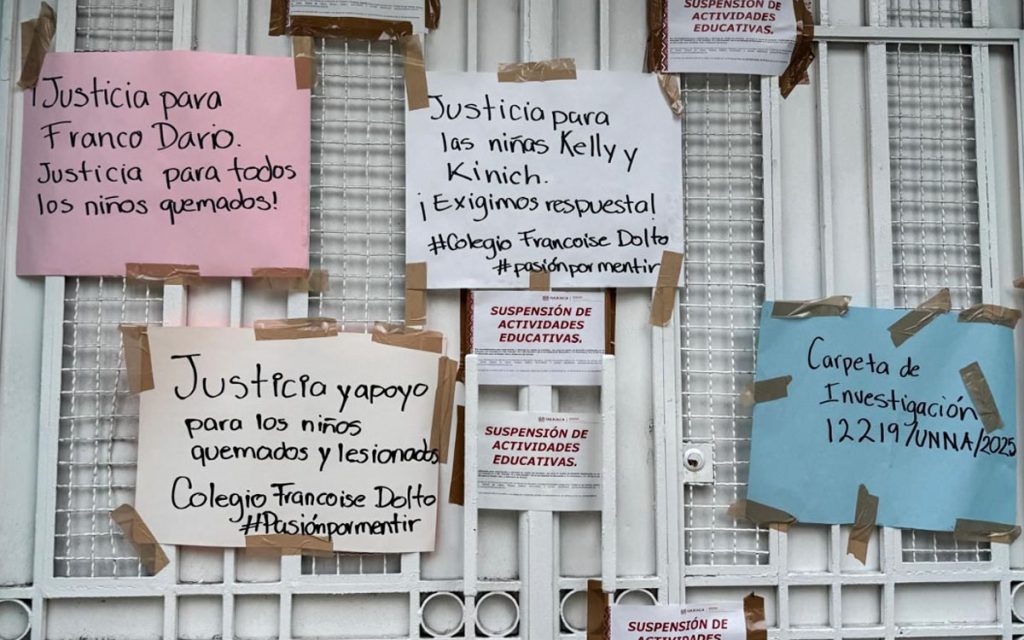 ¡Justicia para
Franco Dario.
Justicia para todos
los niños quemados!
Justicia para
las niñas Kelly y
Kinich.
¡Exigimos respuesta!
#Colegio Francoise Dolto
#pasiónpormentir
SUSPENSIÓN DE
ACTIVIDADES
EDUCATIVAS.
Justicia y apoyo
para los niños
quemados y lesionados
Colegio Francoise Dolto
#Pasiónpormentir
OAXACA
SUSPENSIÓN DE
ACTIVIDADES
EDUCATIVAS.
OAXACA
SUSPENSIÓN DE
ACTIVIDADES
EDUCATIVAS.
Carpeta de
Investigación
12219/UNNA/2025
OAXACA
SUSPENSIÓN DE
ACTIVIDADES